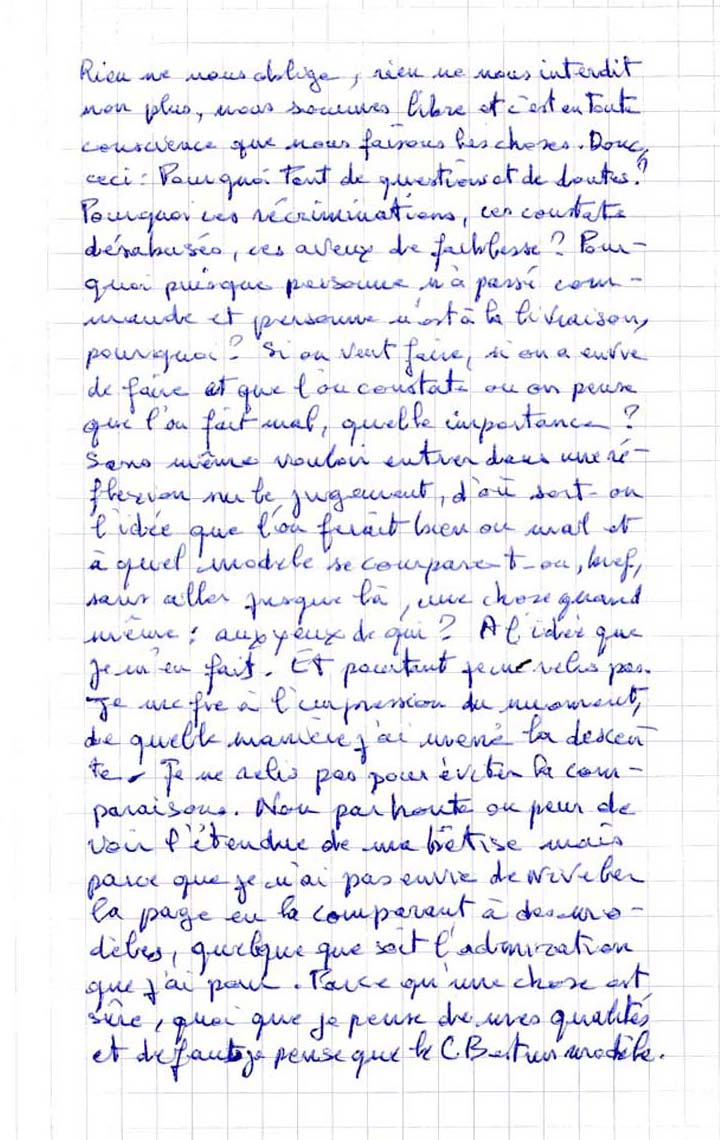 Rien ne nous oblige, rien ne nous interdit
non plus, nous sommes libre et c'est en toute
conscience que nous faisons les choses. Donc,
ceci : Pourquoi tant de questions et de doutes ?
Pourquoi ces récriminations, ces constats
désabusés, ces aveux de faiblesse ? Pour-
quoi puisque personne n'à passé com-
mande et personne n'est à la livraison,
pourquoi ? Si on veut faire, si on a envie
de faire et que l'on constate ou on pense
que l'on fait mal, quelle importance ?
Sans même vouloir entrer dans une ré-
flexion sur le jugement, d'où sort-on
l'idée que l'on ferait bien ou mal et
à quel modèle se compare-t-on, bref,
sans aller jusque là, une chose quand
même : aux yeux de qui ? A l'idée que
je m'en fait. Et pourtant je ne relis pas.
Je me fie à l'impression du moment,
de quelle manière j'ai mené la descen
te. Je ne relis pas pour éviter la com-
paraison. Non par honte ou peur de
voir l'étendue de ma bêtise mais
parce que je n'ai pas envie de niveler
la page en la comparant à des mo-
dèles, quelque que soit l'admiration
que j'ai pour. Parce qu'une chose est
sûre, quoi que je pense de mes qualités
et défauts je pense que le C.B est un modèle.